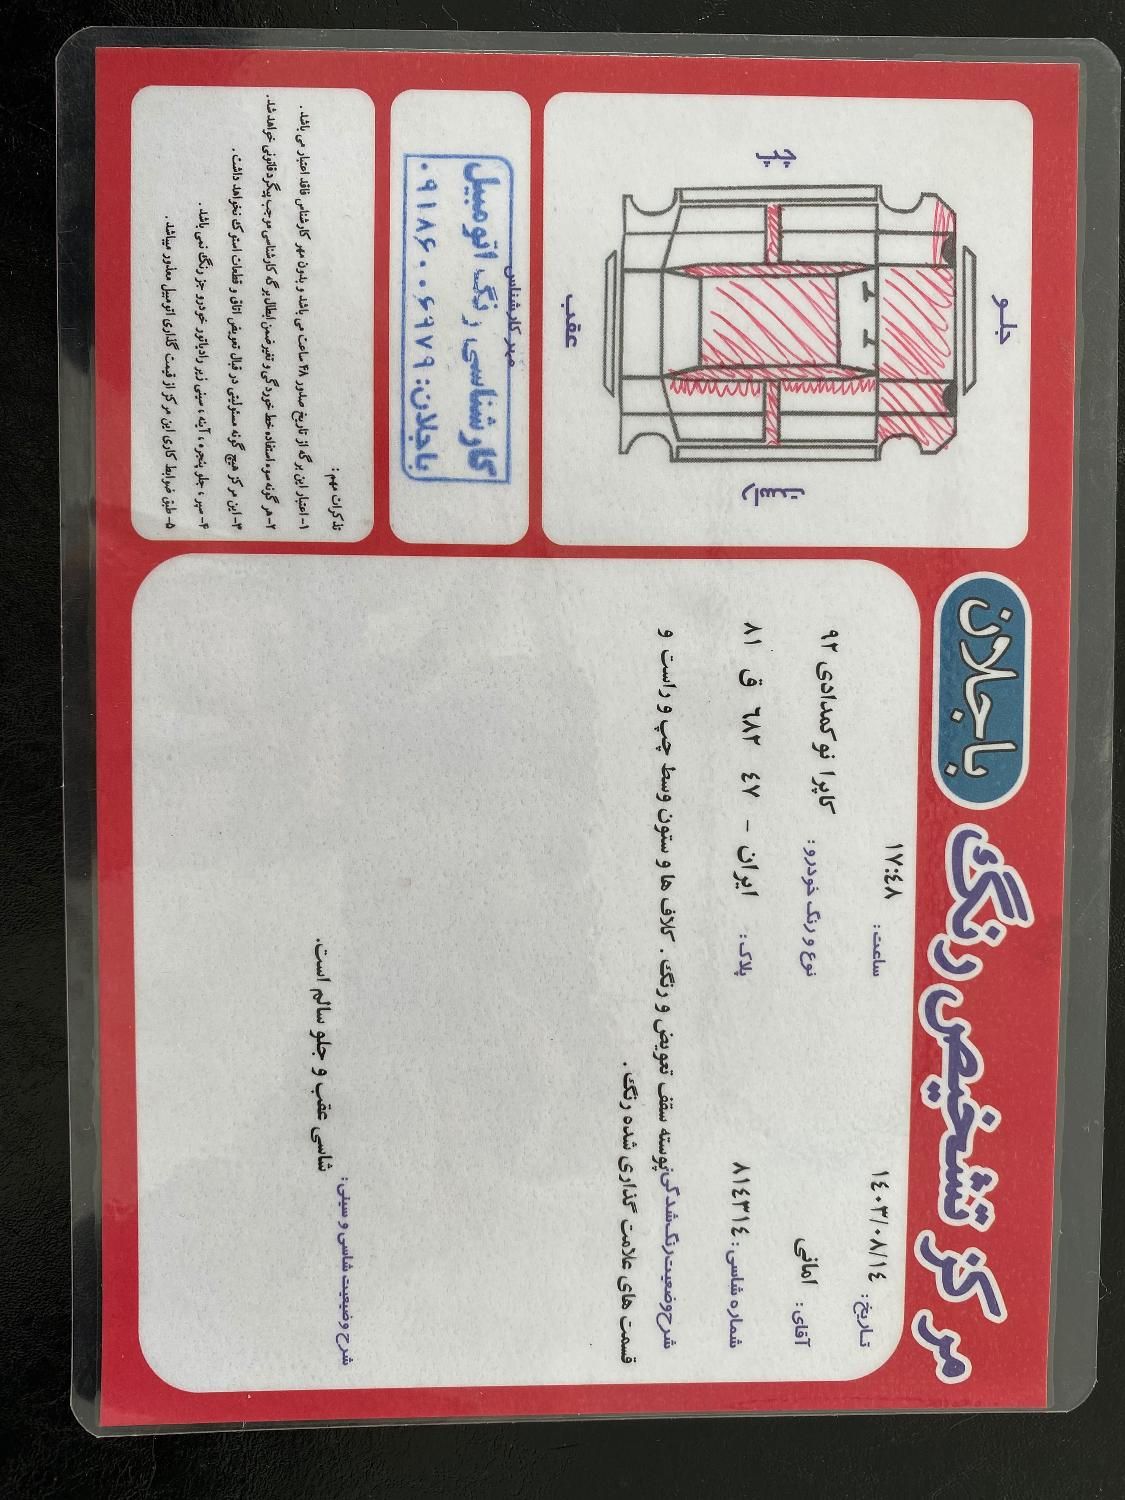 مرکز تشخیص رنگ باجلان
تاریخ: ۱۴۰۳/۰۸/۱۴
ساعت: ۱۷:۴۸
آقای: امانی
نوع و رنگ خودرو: کاپرا نوکمدادی ۹۲
شماره شاسی: ۸۱۴۳۱۴
پلاک: ایران - ۴۷ ۶۸۲ ق ۸۱
شرح وضعیت رنگ‌شدگی: پوسته سقف تعویض و رنگ . کلاف ها و ستون وسط چپ و راست و
قسمت های علامت گذاری شده رنگ .
شرح وضیعیت شاسی و سینی:
شاسی عقب و جلو سالم است.
جلو
عقب
مهر کارشناس
کارشناسی رنگ اتومبیل
باجلان: ۰۹۱۸۶۰۰۶۹۷۹
تذکرات مهم:
۱- اعتبار این برگه از تاریخ صدور ۴۸ ساعت می باشد و بدون مهر کارشناس فاقد اعتبار می باشد.
۲- هر گونه سوء استفاده خط خوردگی و تغیر ضمن ابطال برگه کارشناسی موجب پیگرد قانونی خواهد شد.
۳- این مرکز هیچ گونه مسئولیتی در قبال تعویض اتاق و قطعات استوک نخواهد داشت.
۴- سپر ، جلو پنجره ، آینه ، سینی زیر رادیاتور خودرو جز رنگ نمی باشد.
۵- طبق ضوابط کاری این مرکز از قیمت گذاری اتومبیل معذور میباشد.